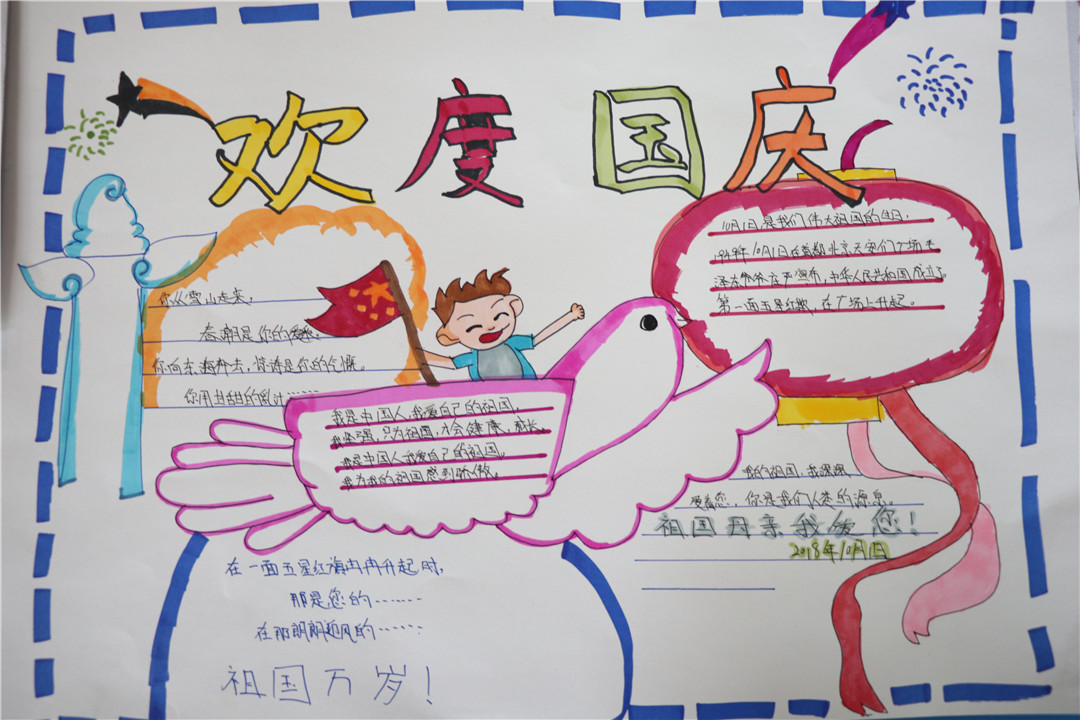 欢度国庆
10月1日是我们伟大祖国的生日,
1949年10月1日在首都北京天安门广场毛
泽东爷爷庄严宣布,中华人民共和国成立了。
第一面五星红旗,在广场上升起。
你从雪山走来,
春潮是你的
你向东海奔去,惊涛是你的气慨。
你用甘甜的乳汁……
我是中国人,我爱自己的祖国,
我坚强,只为祖国,才会健康,成长。
我是中国人我爱自己的祖国。
我为我的祖国感到骄傲。
我的祖国,我深深
爱着您,你是我们人类的源息。
祖国母亲我爱您!
2018年10月1日
在一面五星红旗冉冉升起时,
那是您的……
在那朗朗迎风的……
祖国万岁!